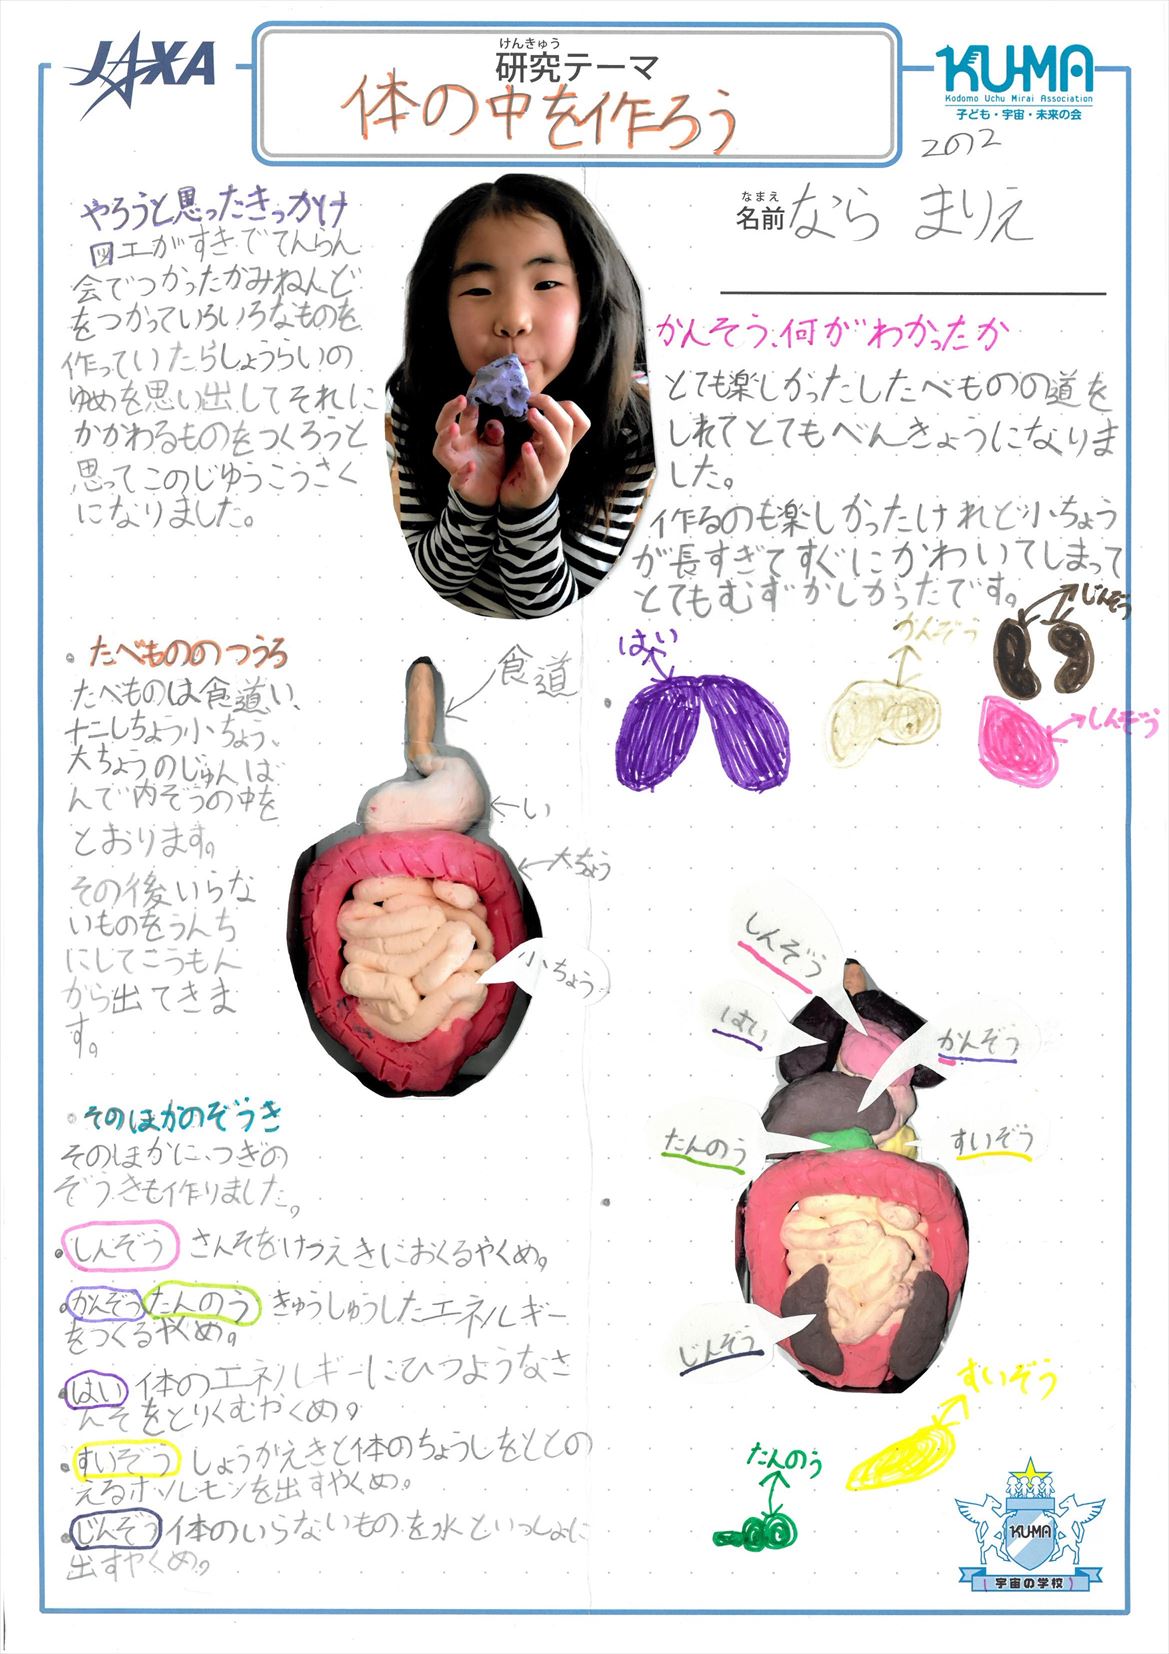 JAXA
けんきゅう
研究テーマ
体の中を作ろう
KU-MA
Kodomo Uchu Mirai Association
子ども・宇宙・未来の会
2の2
なまえ
名前 なら まりえ
やろうと思ったきっかけ
図工がすきでてんらん
会でつかったかみねんど
をつかっていろいろなものを
作っていたらしょうらいの
ゆめを思い出してそれに
かかわるものをつくろうと
思ってこのじゆうこうさく
になりました。
かんそう、何がわかったか
とても楽しかったしたべものの道を
しれてとてもべんきょうになりま
した。
作るのも楽しかったけれど小ちょう
が長すぎてすぐにかわいてしまって
とてもむずかしかったです。
はい
かんぞう
じんぞう
しんぞう
・たべもののつうろ
たべものは食道い、
十二しちょう小ちょう、
大ちょうのじゅんば
んで内ぞうの中を
とおります。
その後いらな
いものをうんち
にしてこうもん
から出てきま
す。
食道
い
大ちょう
小ちょう
しんぞう
はい
かんぞう
たんのう
すいぞう
じんぞう
・そのほかのぞうき
そのほかに、つぎの
ぞうきも作りました。
・しんぞう さんそをけつえきにおくるやくめ。
・かんぞう たんのう きゅうしゅうしたエネルギー
をつくるやくめ。
・はい 体のエネルギーにひつようなさ
んそをとりくむやくめ。
・すいぞう しょうかえきと体のちょうしをととの
えるホルモンを出すやくめ。
・じんぞう 体のいらないものを水といっしょに
出すやくめ。
すいぞう
たんのう
KU-MA
宇宙の学校